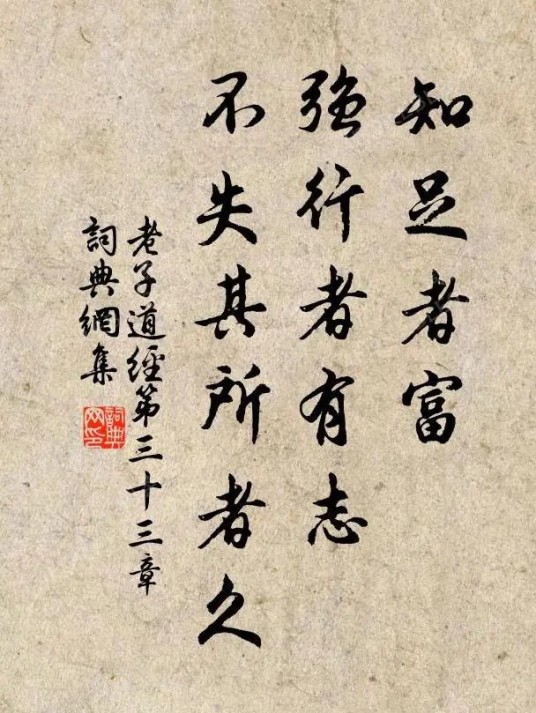 知足者富
強行者有志
不失其所者久
老子道經第三十三章
詞典網集
詞典网印